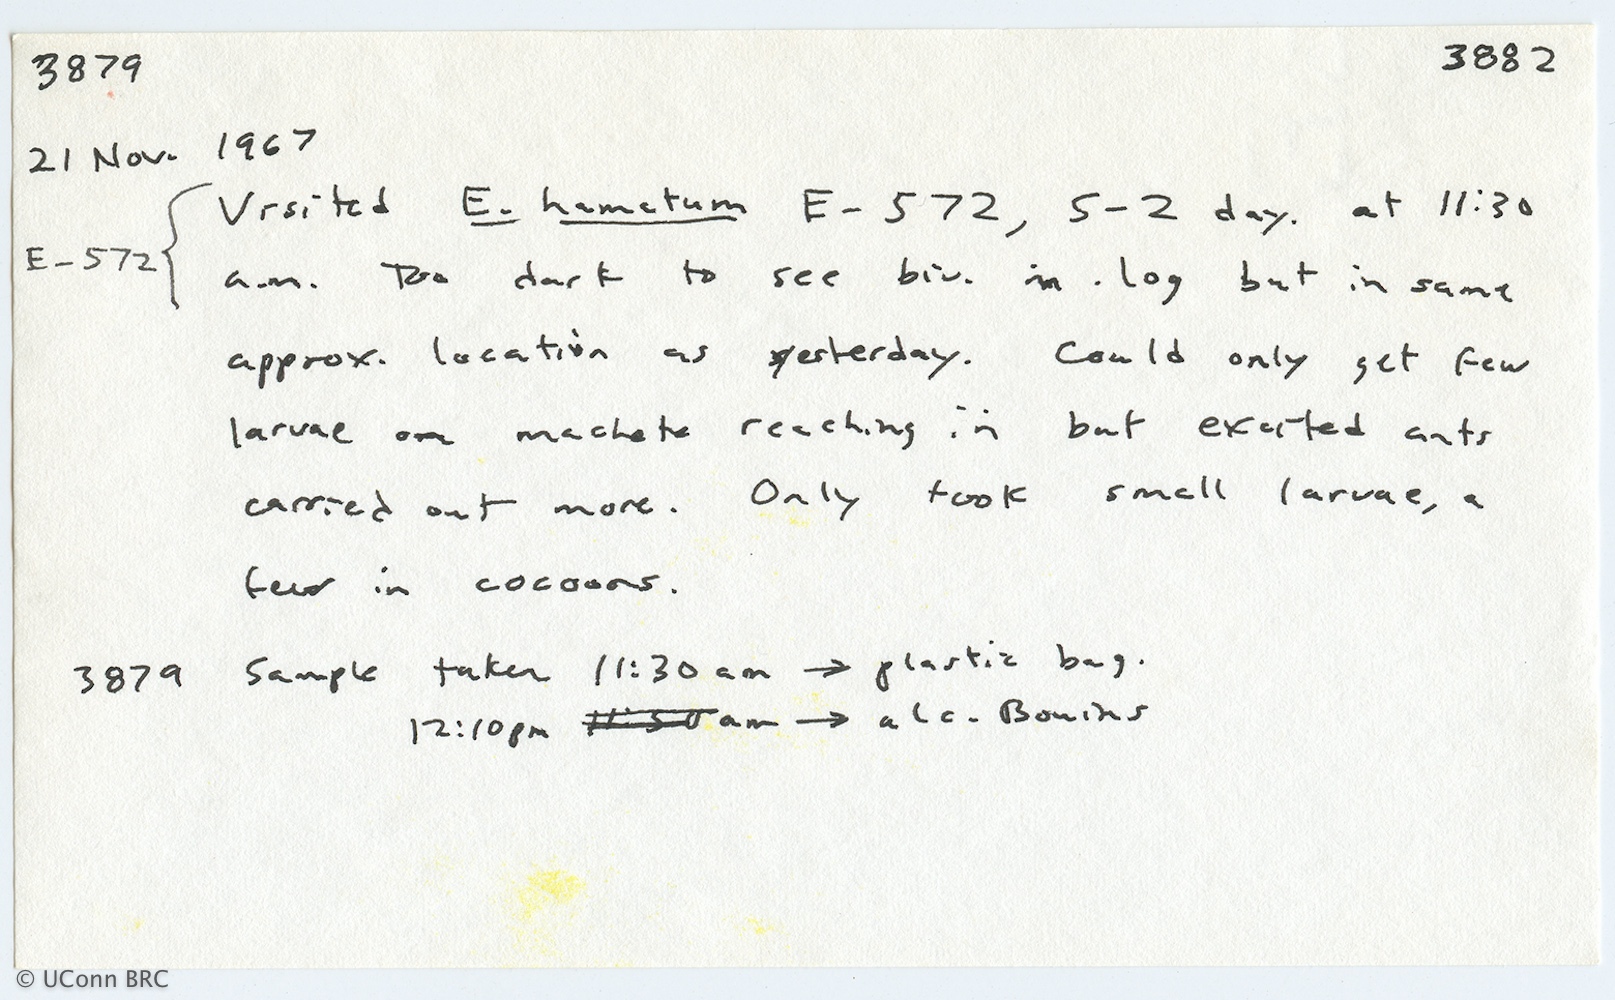 3879 3882
21 Nov. 1967
Visited E. hamatum E-572, S-2 day. at 11:30
E-572
a.m. Too dark to see biv. in log but in same
approx. location as yesterday. Could only get few
larvae on machete reaching in but excited ants
carried out more. Only took small larvae, a
few in cocoons.
3879 Sample taken 11:30 am → plastic bag.
12:10pm 11:50 am → alc. Bouins
© UConn BRC